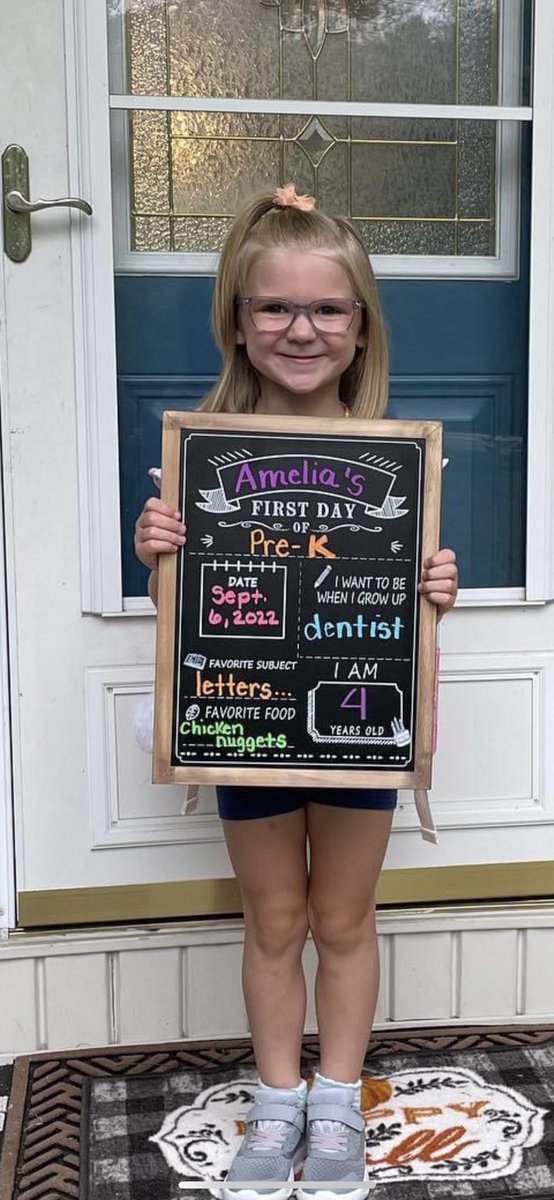 Amelia's
FIRST DAY
OF
Pre-K
DATE
Sept.
6, 2022
I WANT TO BE
WHEN I GROW UP
dentist
FAVORITE SUBJECT
letters...
FAVORITE FOOD
Chicken
nuggets
I AM
4
YEARS OLD